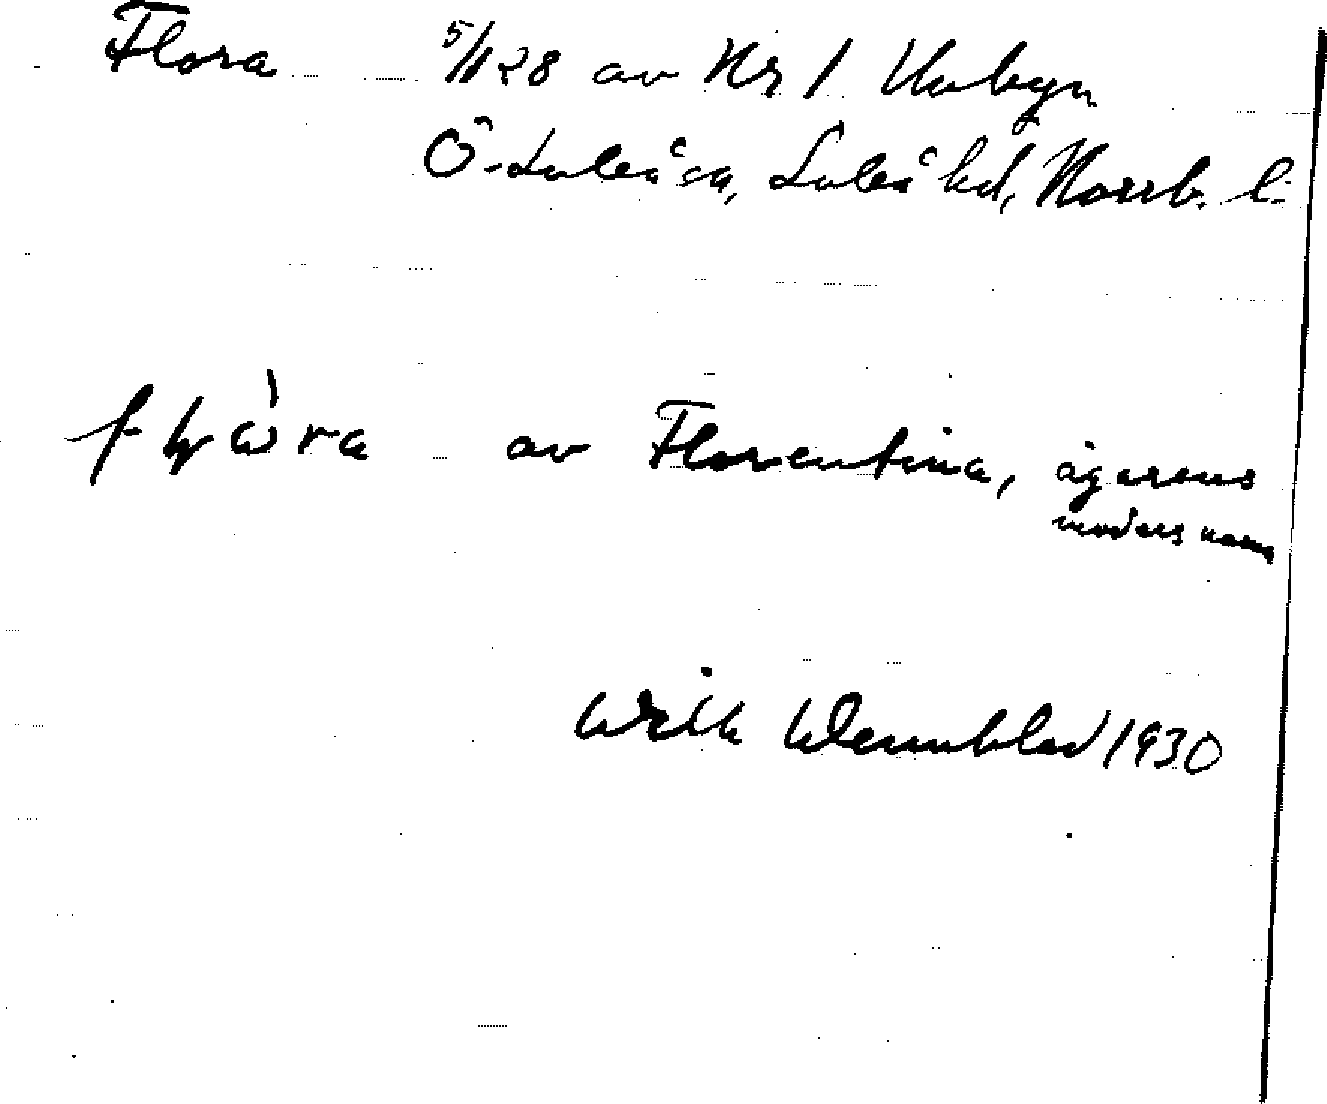 Flora 5/11 28 av Nr 1 Unbyn
Ö-Luleå sn, Luleå hd, Norrb. l.
av Florentina, ägarens
moders namn
Wilh Wennblad 1930